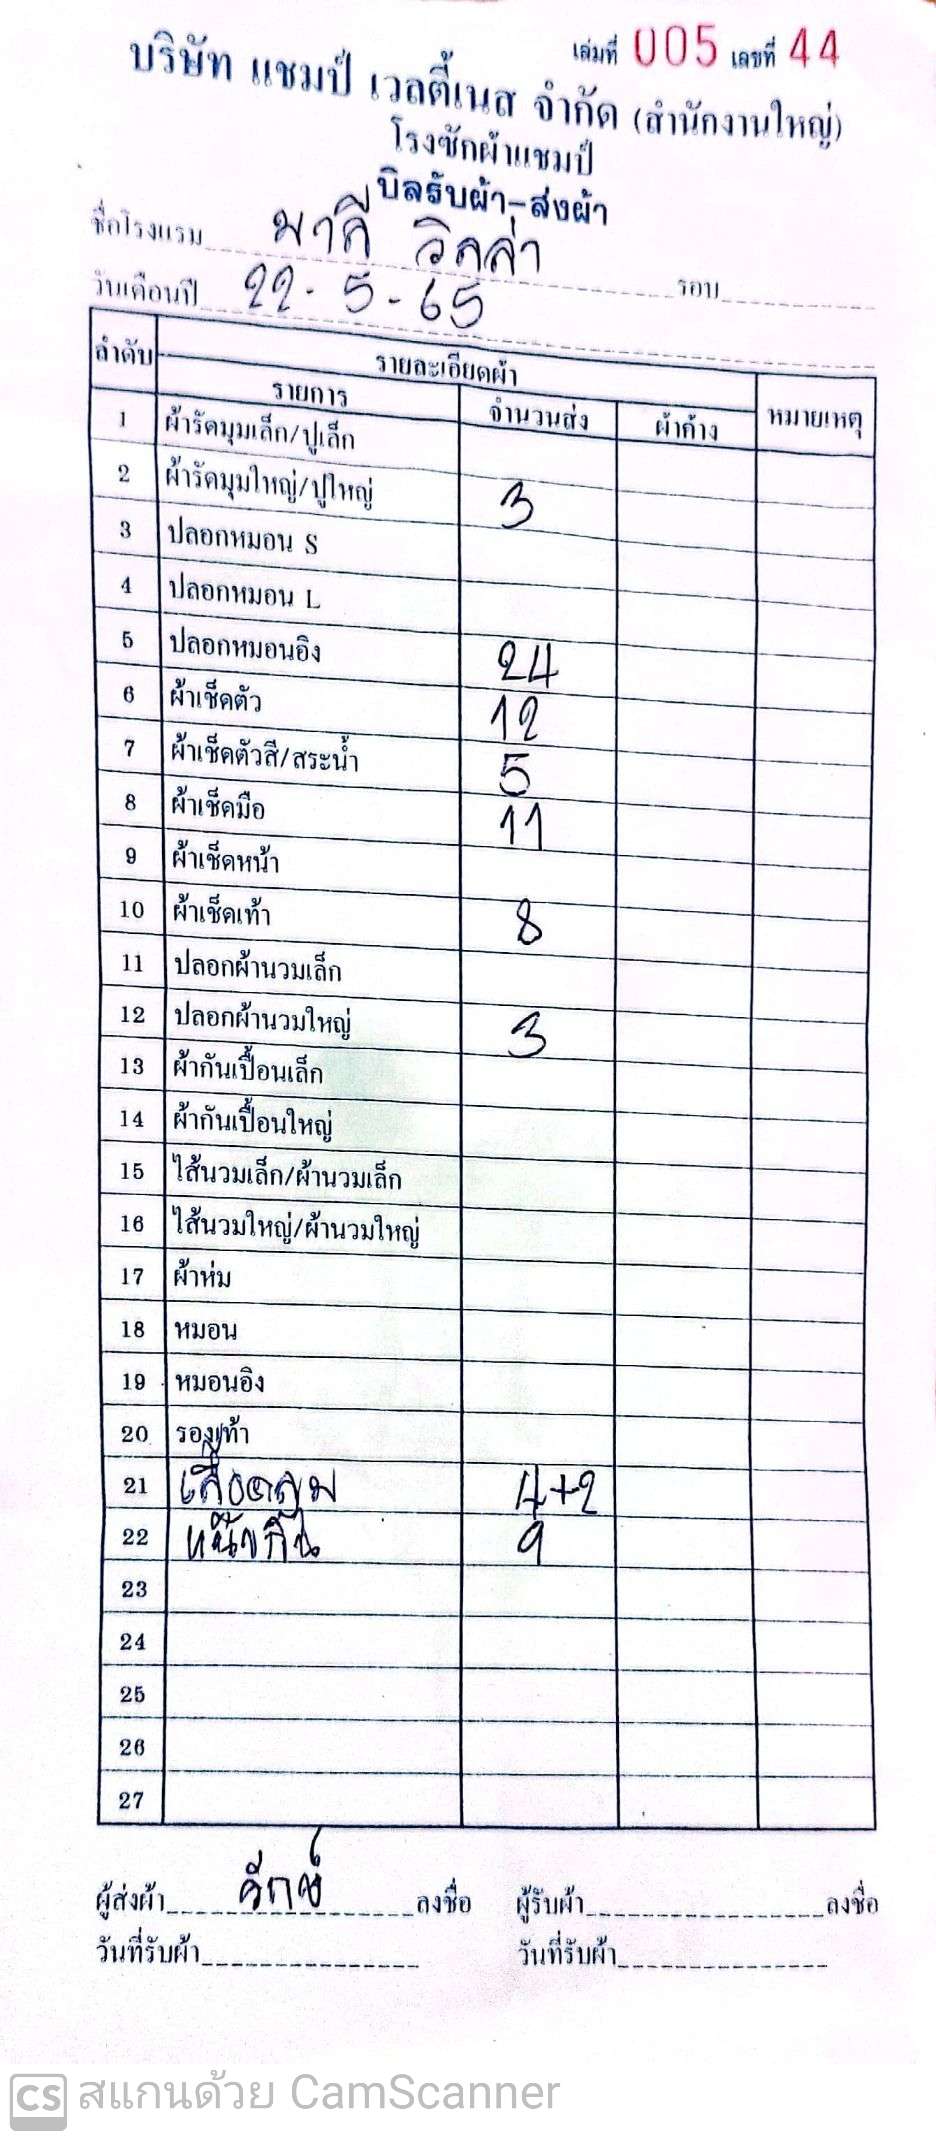 เล่มที่ 005 เลขที่ 44
บริษัท แชมป์ เวลตี้เนส จำกัด (สำนักงานใหญ่)
โรงซักผ้าแชมป์
บิลรับผ้า-ส่งผ้า
ชื่อโรงแรม มาลี วิลล่า รอบ
วันเดือนปี 22-5-65
ลำดับ รายละเอียดผ้า หมายเหตุ
รายการ จำนวนส่ง ผ้าค้าง
1 ผ้ารัดมุมเล็ก/ปูเล็ก
2 ผ้ารัดมุมใหญ่/ปูใหญ่ 3
3 ปลอกหมอน S
4 ปลอกหมอน L
5 ปลอกหมอนอิง 24
6 ผ้าเช็ดตัว 12
7 ผ้าเช็ดตัวสี/สระน้ำ 5
8 ผ้าเช็ดมือ 11
9 ผ้าเช็ดหน้า
10 ผ้าเช็ดเท้า 8
11 ปลอกผ้านวมเล็ก
12 ปลอกผ้านวมใหญ่ 3
13 ผ้ากันเปื้อนเล็ก
14 ผ้ากันเปื้อนใหญ่
15 ไส้นวมเล็ก/ผ้านวมเล็ก
16 ไส้นวมใหญ่/ผ้านวมใหญ่
17 ผ้าห่ม
18 หมอน
19 หมอนอิง
20 รองเท้า
21 เสื้อคลุม 4+2
22 9
23
24
25
26
27
ผู้ส่งผ้า ลงชื่อ ผู้รับผ้า ลงชื่อ
วันที่รับผ้า วันที่รับผ้า
CS สแกนด้วย CamScanner